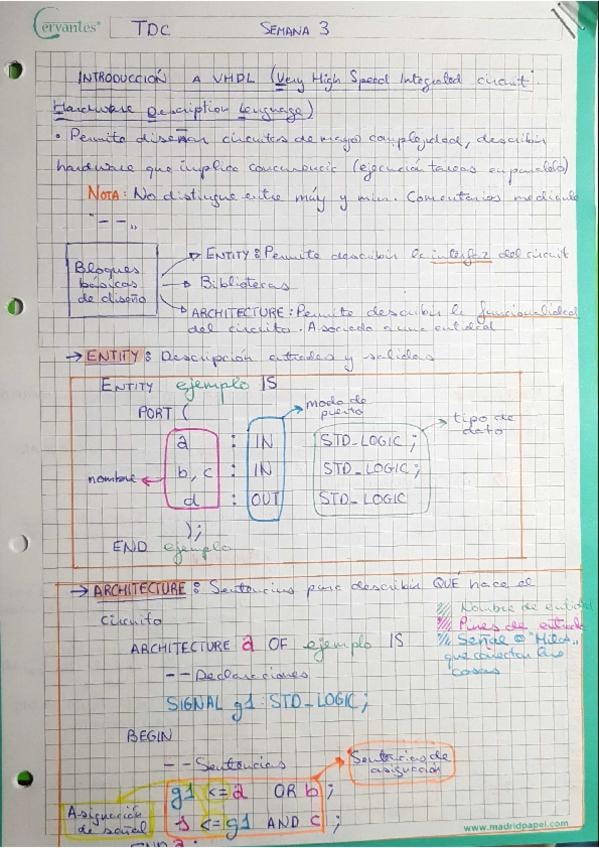 Cervantes® TDC SEMANA 3
INTRODUCCIÓN A VHDL (Very High Speed Integrated circuit
Hardware Description Lenguage)
• Permite diseñar circuitos de mayor complejidad, describir
hardware que implica concurrencia (ejecución tareas en paralelo)
NOTA: No distingue entre máy y min. Comentarios mediante
"--"
Bloques básicos de diseño
→ ENTITY: Permite describir la interfaz del circuit
→ Bibliotecas
→ ARCHITECTURE: Permite describir la funcionalidad
del circuito. Asociada a una entidad
→ ENTITY: Descripción entradas y salidas
ENTITY ejemplo IS
PORT (
modo de puerto
tipo de dato
a : IN STD_LOGIC;
nombre
b, c : IN STD_LOGIC;
d : OUT STD_LOGIC
);
END ejemplo
→ ARCHITECTURE: Sentencias para describir QUÉ hace el
circuito
Nombre de entidad
Pines de entrada
Señal o "Hilos"
que conectan las
cosas
ARCHITECTURE a OF ejemplo IS
-- Declaraciones
SIGNAL g1 : STD_LOGIC;
BEGIN
-- Sentencias
Sentencias de asignación
g1 <= a OR b;
Asignación de señal
s <= g1 AND c;
END a;
www.madridpapel.com